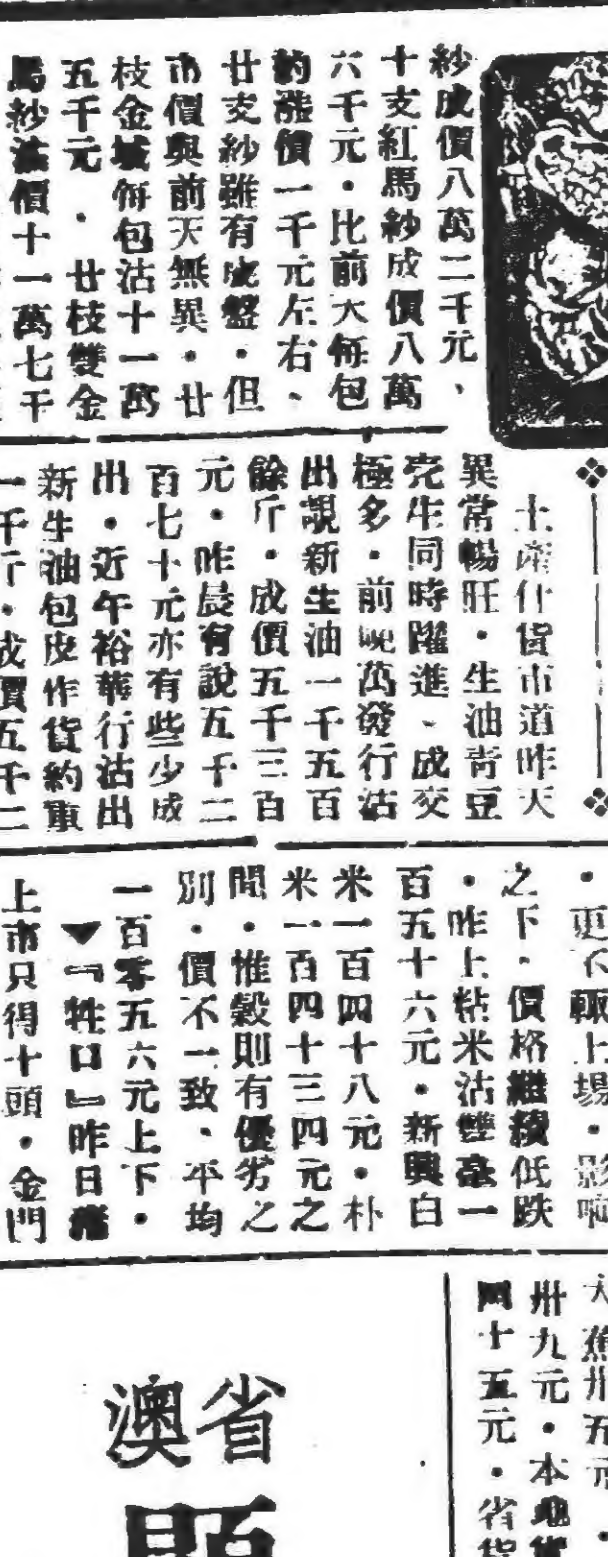 紗成價八萬二千元、
十支紅馬紗成價八萬
六千元・比前天每包
約漲價一千元左右、
廿支紗雖有成盤・但
市價與前天無異・廿
枝金城每包沽十一萬
五千元・廿枝雙金
馬紗沽價十一萬七千
土產什貨市道昨天
異常暢旺・生油青豆
売生同時躍進、成交
極多・前晚萬發行沽
出説新生油一千五百
餘斤・成價五千三百
元・昨晨有說五千二
百七十元亦有些少成
出・近午裕華行沽出
新生油包皮作貨約重
一千斤・成價五千二
・更不輙上場・影响
之下・價格繼續低跌
・昨上粘米沽雙毫一
百五十六元・新興白
米一百四十八元・朴
米一百四十三四元之
間・惟穀則有優劣之
別・價不一致、平均
一百零五六元上下・
▼『牲口』昨日
上市只得十頭・金門
大蕉卅五元・
卅九元・本地
四十五元・省貨
省
澳